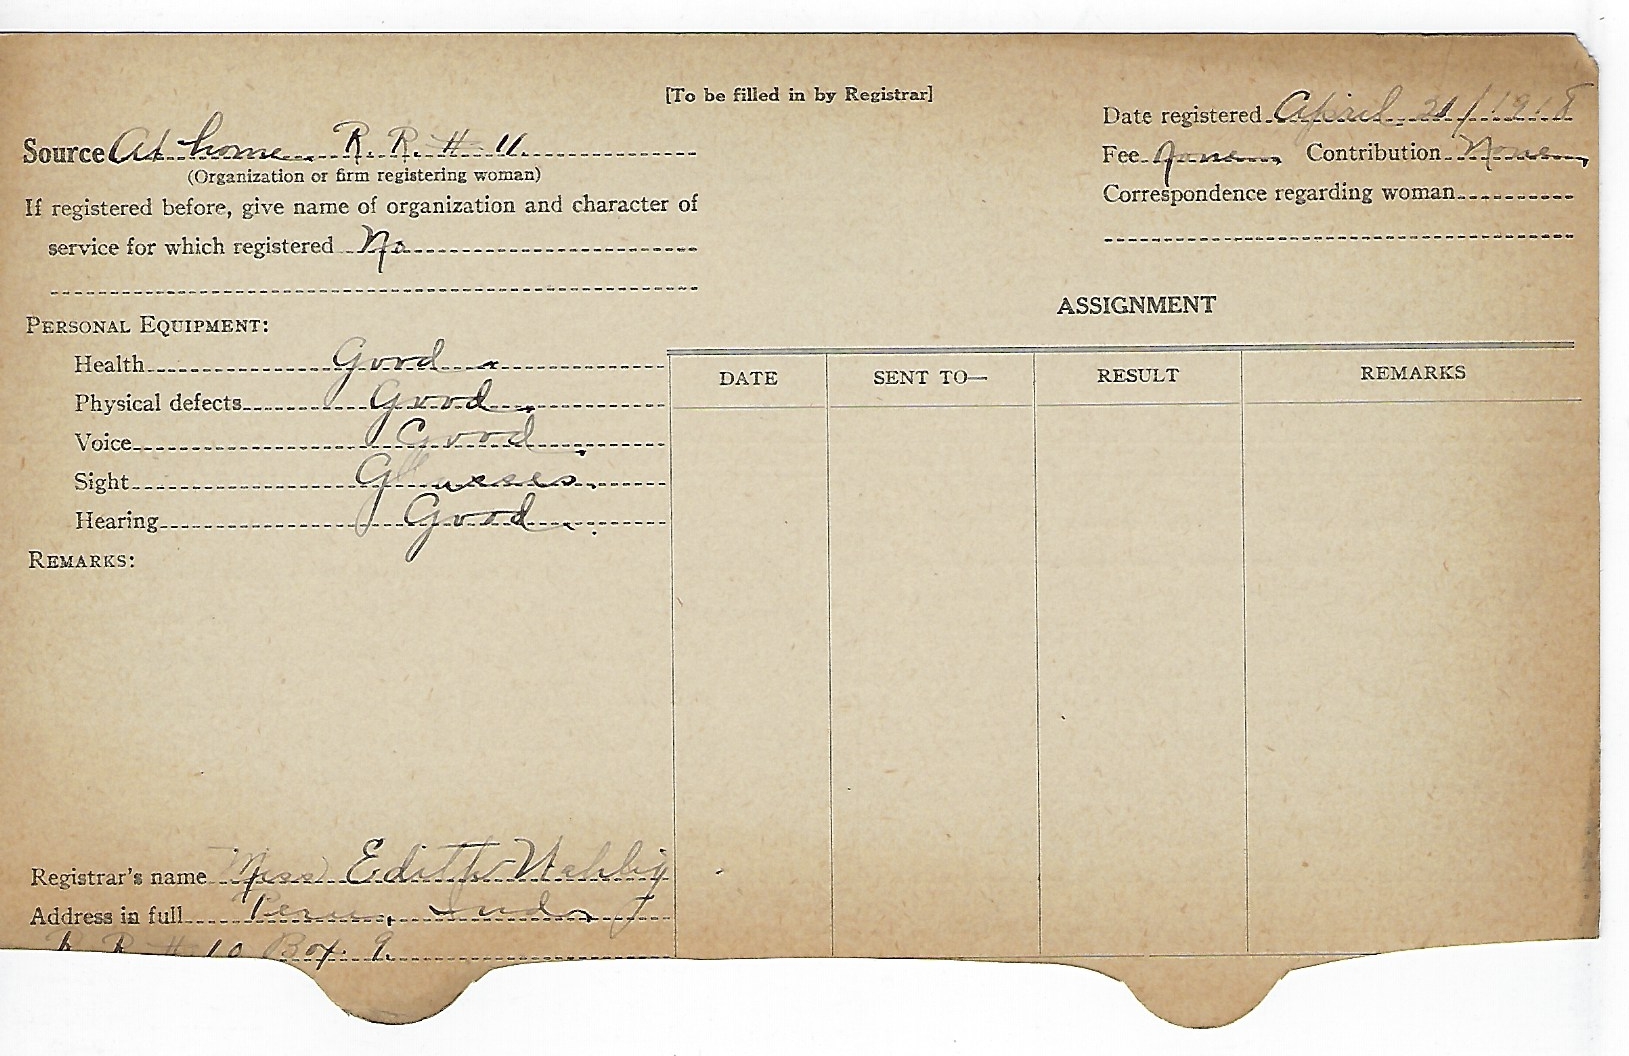 [To be filled in by Registrar]
Date registered April 21/1918
Source At home. R. R. # 11.
(Organization or firm registering woman)
Fee None. Contribution None.
If registered before, give name of organization and character of
service for which registered No
Correspondence regarding woman
PERSONAL EQUIPMENT:
Health Good.
Physical defects Good.
Voice Good.
Sight Glasses.
Hearing Good.
REMARKS:
ASSIGNMENT
DATE SENT TO— RESULT REMARKS
Registrar's name Miss Edith
Address in full Peru, Ind.
R R # 10 Box. 9.